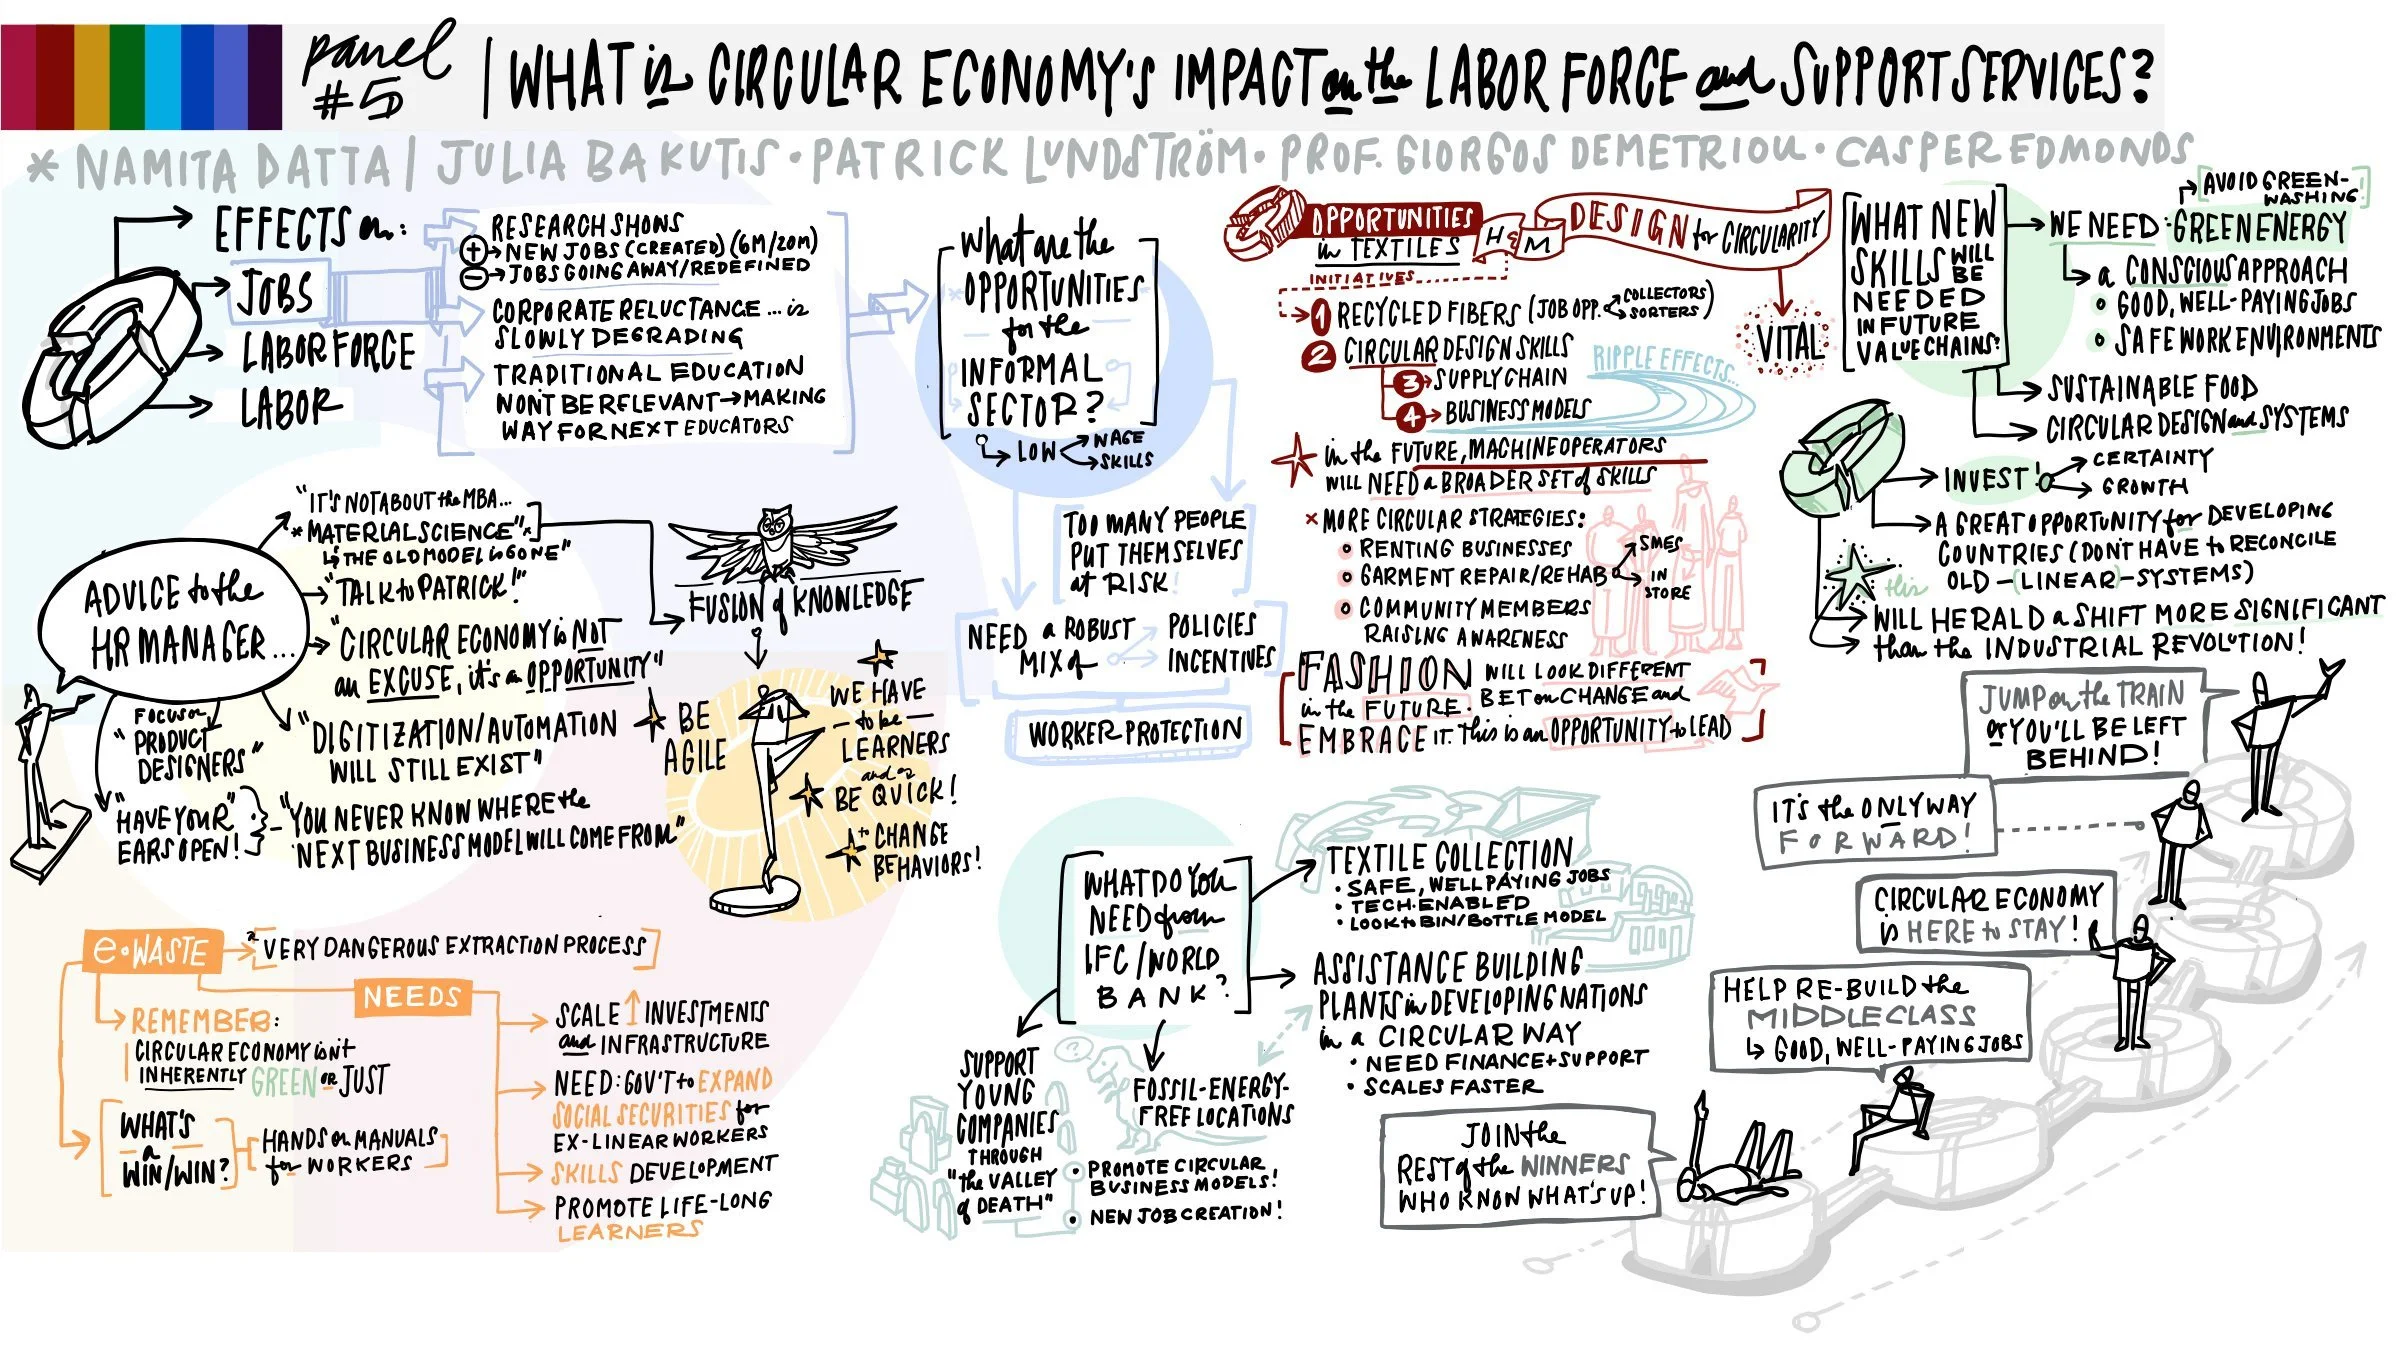 panel
#5
| WHAT is CIRCULAR ECONOMY'S IMPACT on the LABOR FORCE and SUPPORT SERVICES?
* NAMITA DATTA | JULIA BAKUTIS • PATRICK LUNDSTRÖM • PROF. GIORGOS DEMETRIOU • CASPER EDMONDS
EFFECTS on:
JOBS
LABOR FORCE
LABOR
RESEARCH SHOWS
+ → NEW JOBS (CREATED) (6M/20M)
- → JOBS GOING AWAY/REDEFINED
CORPORATE RELUCTANCE ... is
SLOWLY DEGRADING
TRADITIONAL EDUCATION
WON'T BE RELEVANT → MAKING
WAY FOR NEXT EDUCATORS
What are the
OPPORTUNITIES
for the
INFORMAL
SECTOR?
LOW
WAGE
SKILLS
TOO MANY PEOPLE
PUT THEMSELVES
at RISK!
NEED a ROBUST
MIX of
POLICIES
INCENTIVES
WORKER PROTECTION
OPPORTUNITIES
in TEXTILES
H&M
DESIGN for CIRCULARITY
VITAL
INITIATIVES
1 RECYCLED FIBERS (JOB OPP.
COLLECTORS
SORTERS)
2 CIRCULAR DESIGN SKILLS
3 → SUPPLY CHAIN
4 → BUSINESS MODELS
RIPPLE EFFECTS...
in the FUTURE, MACHINE OPERATORS
WILL NEED a BROADER SET of SKILLS
× MORE CIRCULAR STRATEGIES:
RENTING BUSINESSES
GARMENT REPAIR/REHAB
SMES
IN
STORE
COMMUNITY MEMBERS
RAISING AWARENESS
FASHION WILL LOOK DIFFERENT
in the FUTURE. BET on CHANGE and
EMBRACE IT. This is an OPPORTUNITY to LEAD
WHAT NEW
SKILLS WILL
BE
NEEDED
IN FUTURE
VALUE CHAINS?
AVOID GREEN-
WASHING
WE NEED: GREEN ENERGY
a CONSCIOUS APPROACH
GOOD, WELL-PAYING JOBS
SAFE WORK ENVIRONMENTS
SUSTAINABLE FOOD
CIRCULAR DESIGN and SYSTEMS
INVEST!
CERTAINTY
GROWTH
A GREAT OPPORTUNITY for DEVELOPING
COUNTRIES (DON'T HAVE to RECONCILE
OLD-(LINEAR)-SYSTEMS)
this
WILL HERALD a SHIFT MORE SIGNIFICANT
than the INDUSTRIAL REVOLUTION!
ADVICE to the
HR MANAGER...
"IT'S NOT ABOUT the MBA...
*MATERIAL SCIENCE"*
↳ THE OLD MODEL is GONE"
"TALK to PATRICK!"
"CIRCULAR ECONOMY is NOT
an EXCUSE, it's an OPPORTUNITY"
"DIGITIZATION/AUTOMATION
WILL STILL EXIST"
FOCUS on
"PRODUCT
DESIGNERS"
"HAVE YOUR"
EARS OPEN!
"YOU NEVER KNOW WHERE the
NEXT BUSINESS MODEL WILL COME FROM"
FUSION of KNOWLEDGE
BE
AGILE
WE HAVE
to be
LEARNERS
and as
BE QUICK!
to CHANGE
BEHAVIORS!
e•WASTE
*VERY DANGEROUS EXTRACTION PROCESS
REMEMBER:
CIRCULAR ECONOMY isn't
INHERENTLY GREEN or JUST
WHAT'S
a
WIN/WIN?
HANDS on MANUALS
for WORKERS
NEEDS
SCALE ↑ INVESTMENTS
and INFRASTRUCTURE
NEED: GOV'T to EXPAND
SOCIAL SECURITIES for
EX-LINEAR WORKERS
SKILLS DEVELOPMENT
PROMOTE LIFE-LONG
LEARNERS
WHAT DO YOU
NEED from
IFC/WORLD
BANK?
TEXTILE COLLECTION
• SAFE, WELL PAYING JOBS
• TECH-ENABLED
• LOOK to BIN/BOTTLE MODEL
ASSISTANCE BUILDING
PLANTS in DEVELOPING NATIONS
in a CIRCULAR WAY
• NEED FINANCE + SUPPORT
• SCALES FASTER
SUPPORT
YOUNG
COMPANIES
THROUGH
"the VALLEY
of DEATH"
?
FOSSIL-ENERGY-
FREE LOCATIONS
• PROMOTE CIRCULAR
BUSINESS MODELS!
• NEW JOB CREATION!
JUMP on the TRAIN
or YOU'LL BE LEFT
BEHIND!
IT'S the ONLY WAY
FORWARD!
CIRCULAR ECONOMY
is HERE to STAY!
HELP RE-BUILD the
MIDDLE CLASS
↳ GOOD, WELL-PAYING JOBS
JOIN the
REST of the WINNERS
WHO KNOW WHAT'S UP!